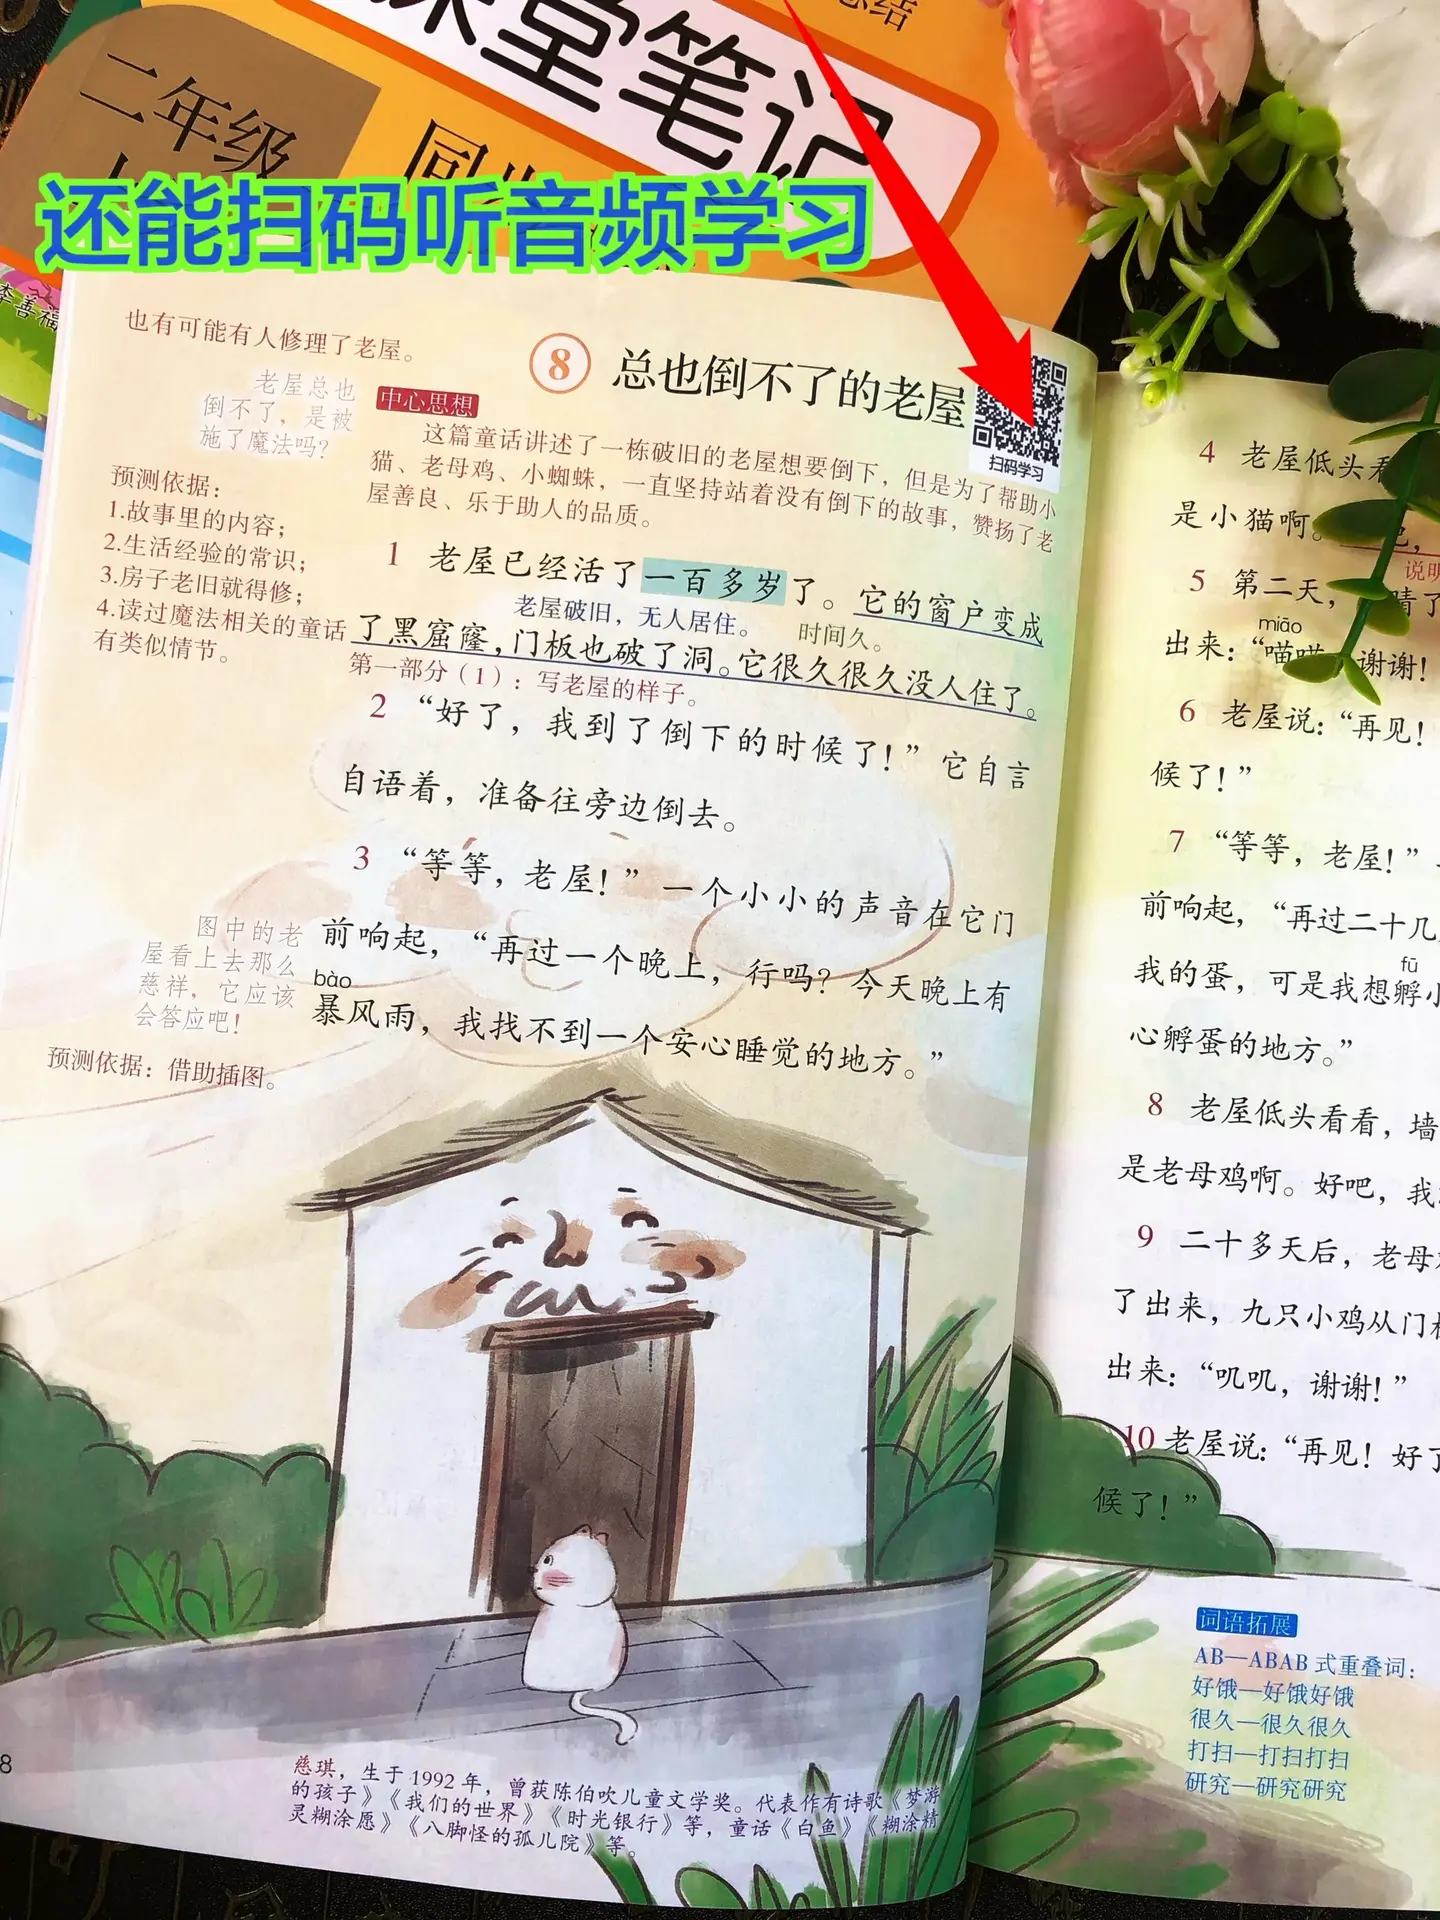 课堂笔记
二年级
同步
还能扫码听音频学习
李善福
也有可能有人修理了老屋。
老屋总也
倒不了，是被
施了魔法吗？
预测依据：
1.故事里的内容；
2.生活经验的常识；
3.房子老旧就得修；
4.读过魔法相关的童话
有类似情节。
8 总也倒不了的老屋
扫码学习
中心思想
这篇童话讲述了一栋破旧的老屋想要倒下，但是为了帮助小
猫、老母鸡、小蜘蛛，一直坚持站着没有倒下的故事，赞扬了老
屋善良、乐于助人的品质。
1 老屋已经活了一百多岁了。它的窗户变成
老屋破旧，无人居住。 时间久。
了黑窟窿，门板也破了洞。它很久很久没人住了。
第一部分（1）：写老屋的样子。
2 “好了，我到了倒下的时候了！”它自言
自语着，准备往旁边倒去。
3 “等等，老屋！”一个小小的声音在它门
前响起，“再过一个晚上，行吗？今天晚上有
bào
暴风雨，我找不到一个安心睡觉的地方。”
图中的老
屋看上去那么
慈祥，它应该
会答应吧！
预测依据：借助插图。
8
慈琪，生于1992年，曾获陈伯吹儿童文学奖。代表作有诗歌《梦游
的孩子》《我们的世界》《时光银行》等，童话《白鱼》《糊涂精
灵糊涂愿》《八脚怪的孤儿院》等。
4 老屋低头看
是小猫啊。
说明
5 第二天，
晴了
miāo
出来：“喵喵，谢谢！
6 老屋说：“再见！
候了！”
7 “等等，老屋！”
前响起，“再过二十几
fū
我的蛋，可是我想孵小
心孵蛋的地方。”
8 老屋低头看看，墙
是老母鸡啊。好吧，我
9 二十多天后，老母
了出来，九只小鸡从门板
出来：“叽叽，谢谢！”
10 老屋说：“再见！好了
候了！”
词语拓展
AB—ABAB式重叠词：
好饿—好饿好饿
很久—很久很久
打扫—打扫打扫
研究—研究研究